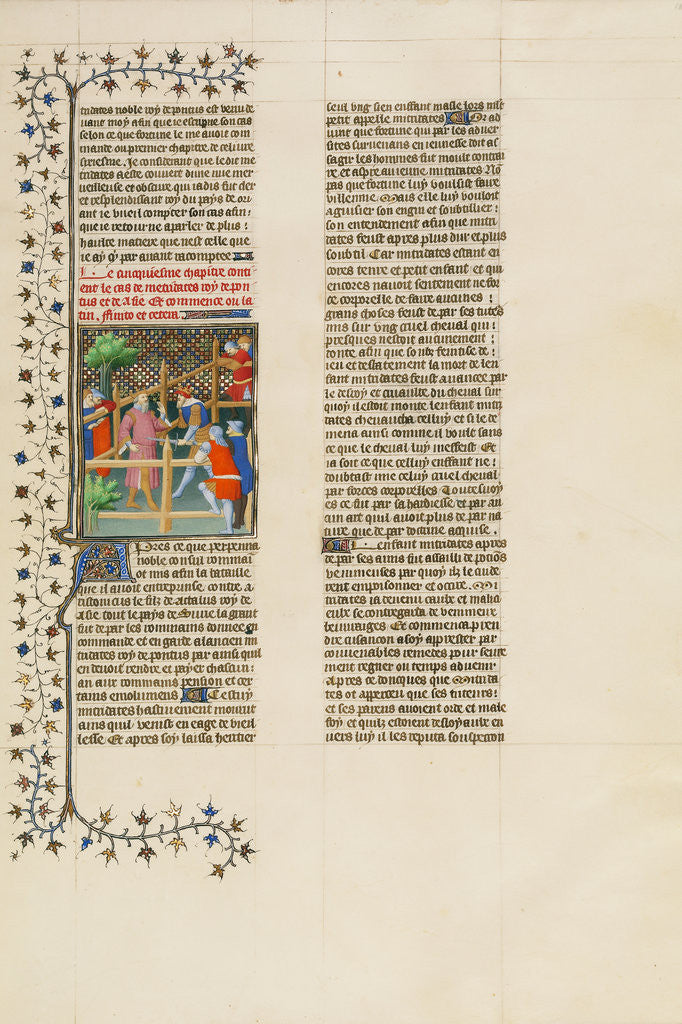 tridates noble roy de pontus est venu de
uant moy afin que ie escripue son cas
selon ce que fortune le me auoit com
mande ou premier chapitre de ce liure
sixiesme. Je considerant que le dit mi
tridates a este couuert dune nue mer
ueilleuse et obscure qui iadis fut cler
et resplendissant roy du pays de ori
ant ie vueil compter son cas afin :
que ie retourne a parler de plus :
haulte matiere que nest celle que
ie ay cy par auant racomptee
Le cinquiesme chapitre conti
ent le cas de metridates roy de pon
tus et de Asie Et commence ou la
tin. ffinito et cetera
Apres ce que perpenna
noble consul rommai
ot mis afin la bataille
que il auoit entreprinse contre a
ristonicus le filz de attalus roy de
asie tout le pays de Surie la grant
fut de par les rommains donnee en
commande et en garde a lancien mi
tridates roy de pontus par ainsi quil
en deuoit rendre et payer chascun :
an aux rommains pension et cer
tains emolumens Cestuy
mitridates hastiuement mourut
ains quil venist en eage de vieil
lesse Et apres soy laissa heritier
seul vng sien enffant masle lors mlt
petit appelle mitridates Or ad
uint que fortune qui par les aduer
sitez suruenans en ieunesse doit as
sagir les hommes fut moult contrai
re et aspre au ieune mitridates Non
pas que fortune luy voulsist faire
villennie Mais elle luy vouloit
aguisier son engin et soubtillier :
son entendement afin que mitri
dates feust apres plus dur et plus
soubtil Car mitridates estant en
cores tenre et petit enfant et qui
encores nauoit sentement ne for
ce corporelle de faire aucunes :
grans choses feust de par ses tuteurs
mis sur vng cruel cheval qui :
presques nestoit aucunement :
donte afin que soubz feintise de :
ieu et desbatement la mort de len
fant mitridates feust auancee par
le desroy et cruaulte du cheual sur
quoy il estoit monte lenfant mitri
dates cheuaucha celluy et si le de
mena ainsi comme il voult sans
ce que le cheual luy meffeist Et
ia soit ce que celluy enffant ne :
doubtast mie celluy cruel cheual
par forces corporelles Toutesuoy
es ce fut par sa hardiesse et par au
cun art quil auoit plus de par na
ture que de par doctrine acquise.
Lenfant mitridates apres
de par ses amis fut assailli de poisons
venimeuses par quoy ilz le cuide
rent emposonner et occire. Mi
tridates ia deuenu caulte et malici
eulx se contregarda de venimeux
beuurages Et commenca pren
dre cusancon a soy apprester par
conuenables remedes pour seure
ment regner ou temps aduenir
Apres ce doncques que mitrida
tes ot apperceu que ses tuteurs :
et ses parens auoient orde et male
foy et quilz estoient desloyaulx en
uers luy il les reputa souspecon